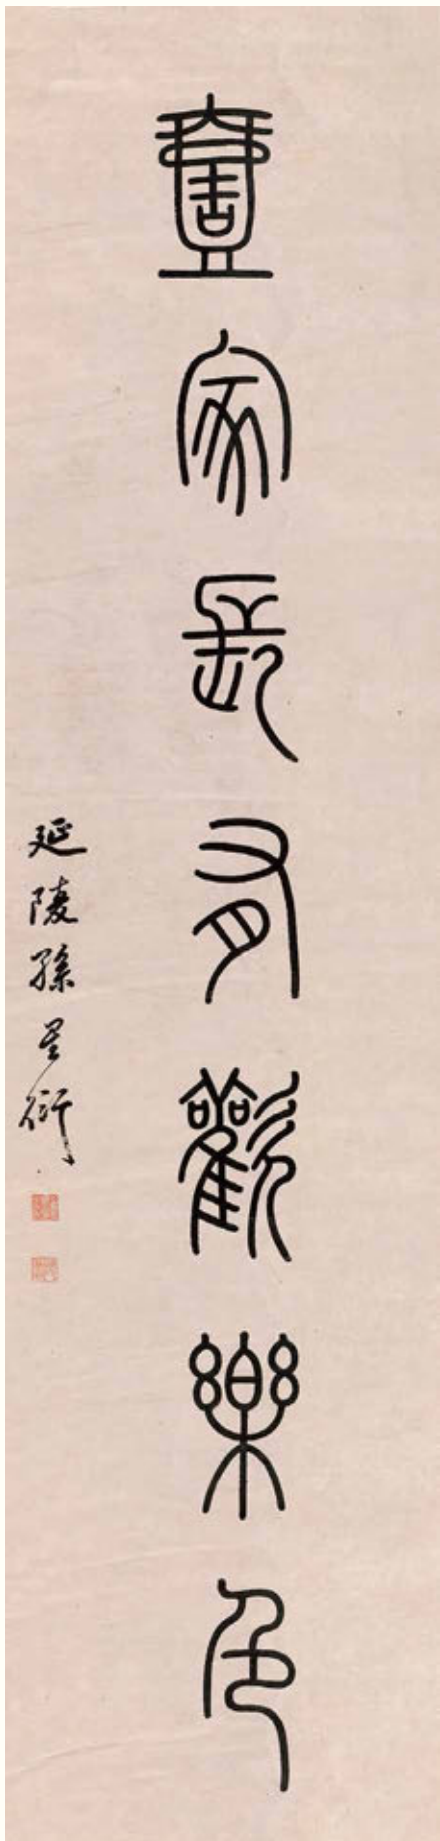 壹家長有歡樂色
延陵孫星衍